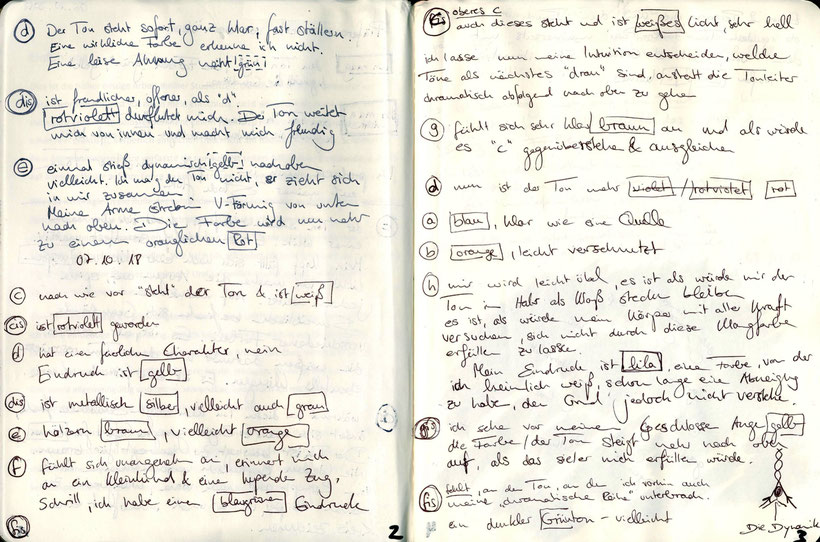 d Der Ton steht sofort, ganz klar, fast stählern.
Eine wirkliche Farbe erkenne ich nicht.
Eine leise Ahnung grün
dis ist freundlicher, offener, als "d"
rotviolett durchflutet mich. Der Ton weitet
mich von innen und macht mich freudig
e einmal stieß dynamisch gelb nach oben
vielleicht. Ich mag den Ton nicht, er zieht sich
in mir zusammen
Meine Arme streben V-förmig von unten
nach oben. Die Farbe wird nun mehr
zu einem oranglichen Rot
07.10.18
c nach wie vor "steht" der Ton & ist weiß
cis ist rotviolett geworden
d hat einen Charakter, mein
Eindruck ist gelb
dis ist metallisch silber, vielleicht auch grau
e hölzern braun, vielleicht orange
f fühlt sich unangenehm an, erinnert mich
an ein Kleinkind & eine hupenden Zug,
Schrill, ich habe einen blaugrünen Eindruck
fis
2
oberes C
auch dieses steht und ist weißes Licht, sehr hell
ich lasse nun meine Intuition entscheiden, welche
Töne als nächstes "dran" sind, anstatt die Tonleiter
chromatisch abfolgend nach oben zu gehen
g fühlt sich sehr klar braun an und als würde
es "C" gegenüberstehen & ausgleichen
d nun ist der Ton mehr violet / rotviolet rot
a blau, klar wie eine Quelle
b orange, leicht verschmutzt
h mir wird leicht übel, es ist als würde mir der
Ton im Hals als Kloß stecken bleiben
es ist, als würde mein Körper mit aller Kraft
versuchen, sich nicht durch diese Klangfarbe
erfüllen zu lassen.
Mein Eindruck ist lila, eine Farbe, von der
ich heimlich weiß, schon lange eine Abneigung
zu haben, den Grund jedoch nicht verstehe.
gis ich sehe vor meinem geschlossenen Auge gelb
die Farbe / der Ton steigt mehr nach oben
auf, als das sie/er mich erfüllen würde.
fis fehlt, an den Ton, an dem ich vorhin auch
meine "chromatische Reihe" unterbrach.
ein dunkler Grünton - vielleicht
Die Dynamik
3